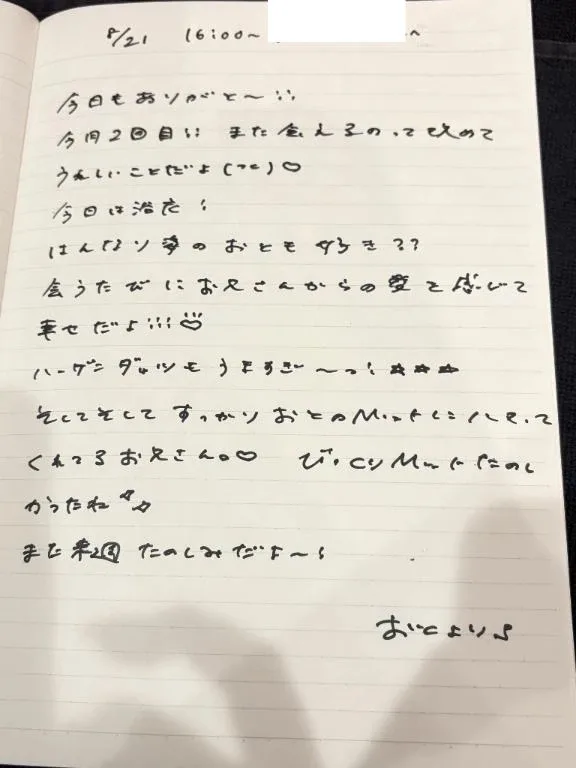 8/21 16:00~ へ
今日もありがと〜!!
今月2回目!! また会えるのって改めて
うれしいことだよ(つ_<)♡
今日は浴衣!
はんなり姿のおとも好き??
会うたびにお兄さんからの愛を感じて
幸せだよ!!!♡
ハーゲンダッツもうますぎ〜っ! ☆☆☆
そしてそしてすっかりおとのMットにハマって
くれてるお兄さん。♡ びっくりMットたのし
かったね♪
また来週たのしみだよ〜!
おとより♪